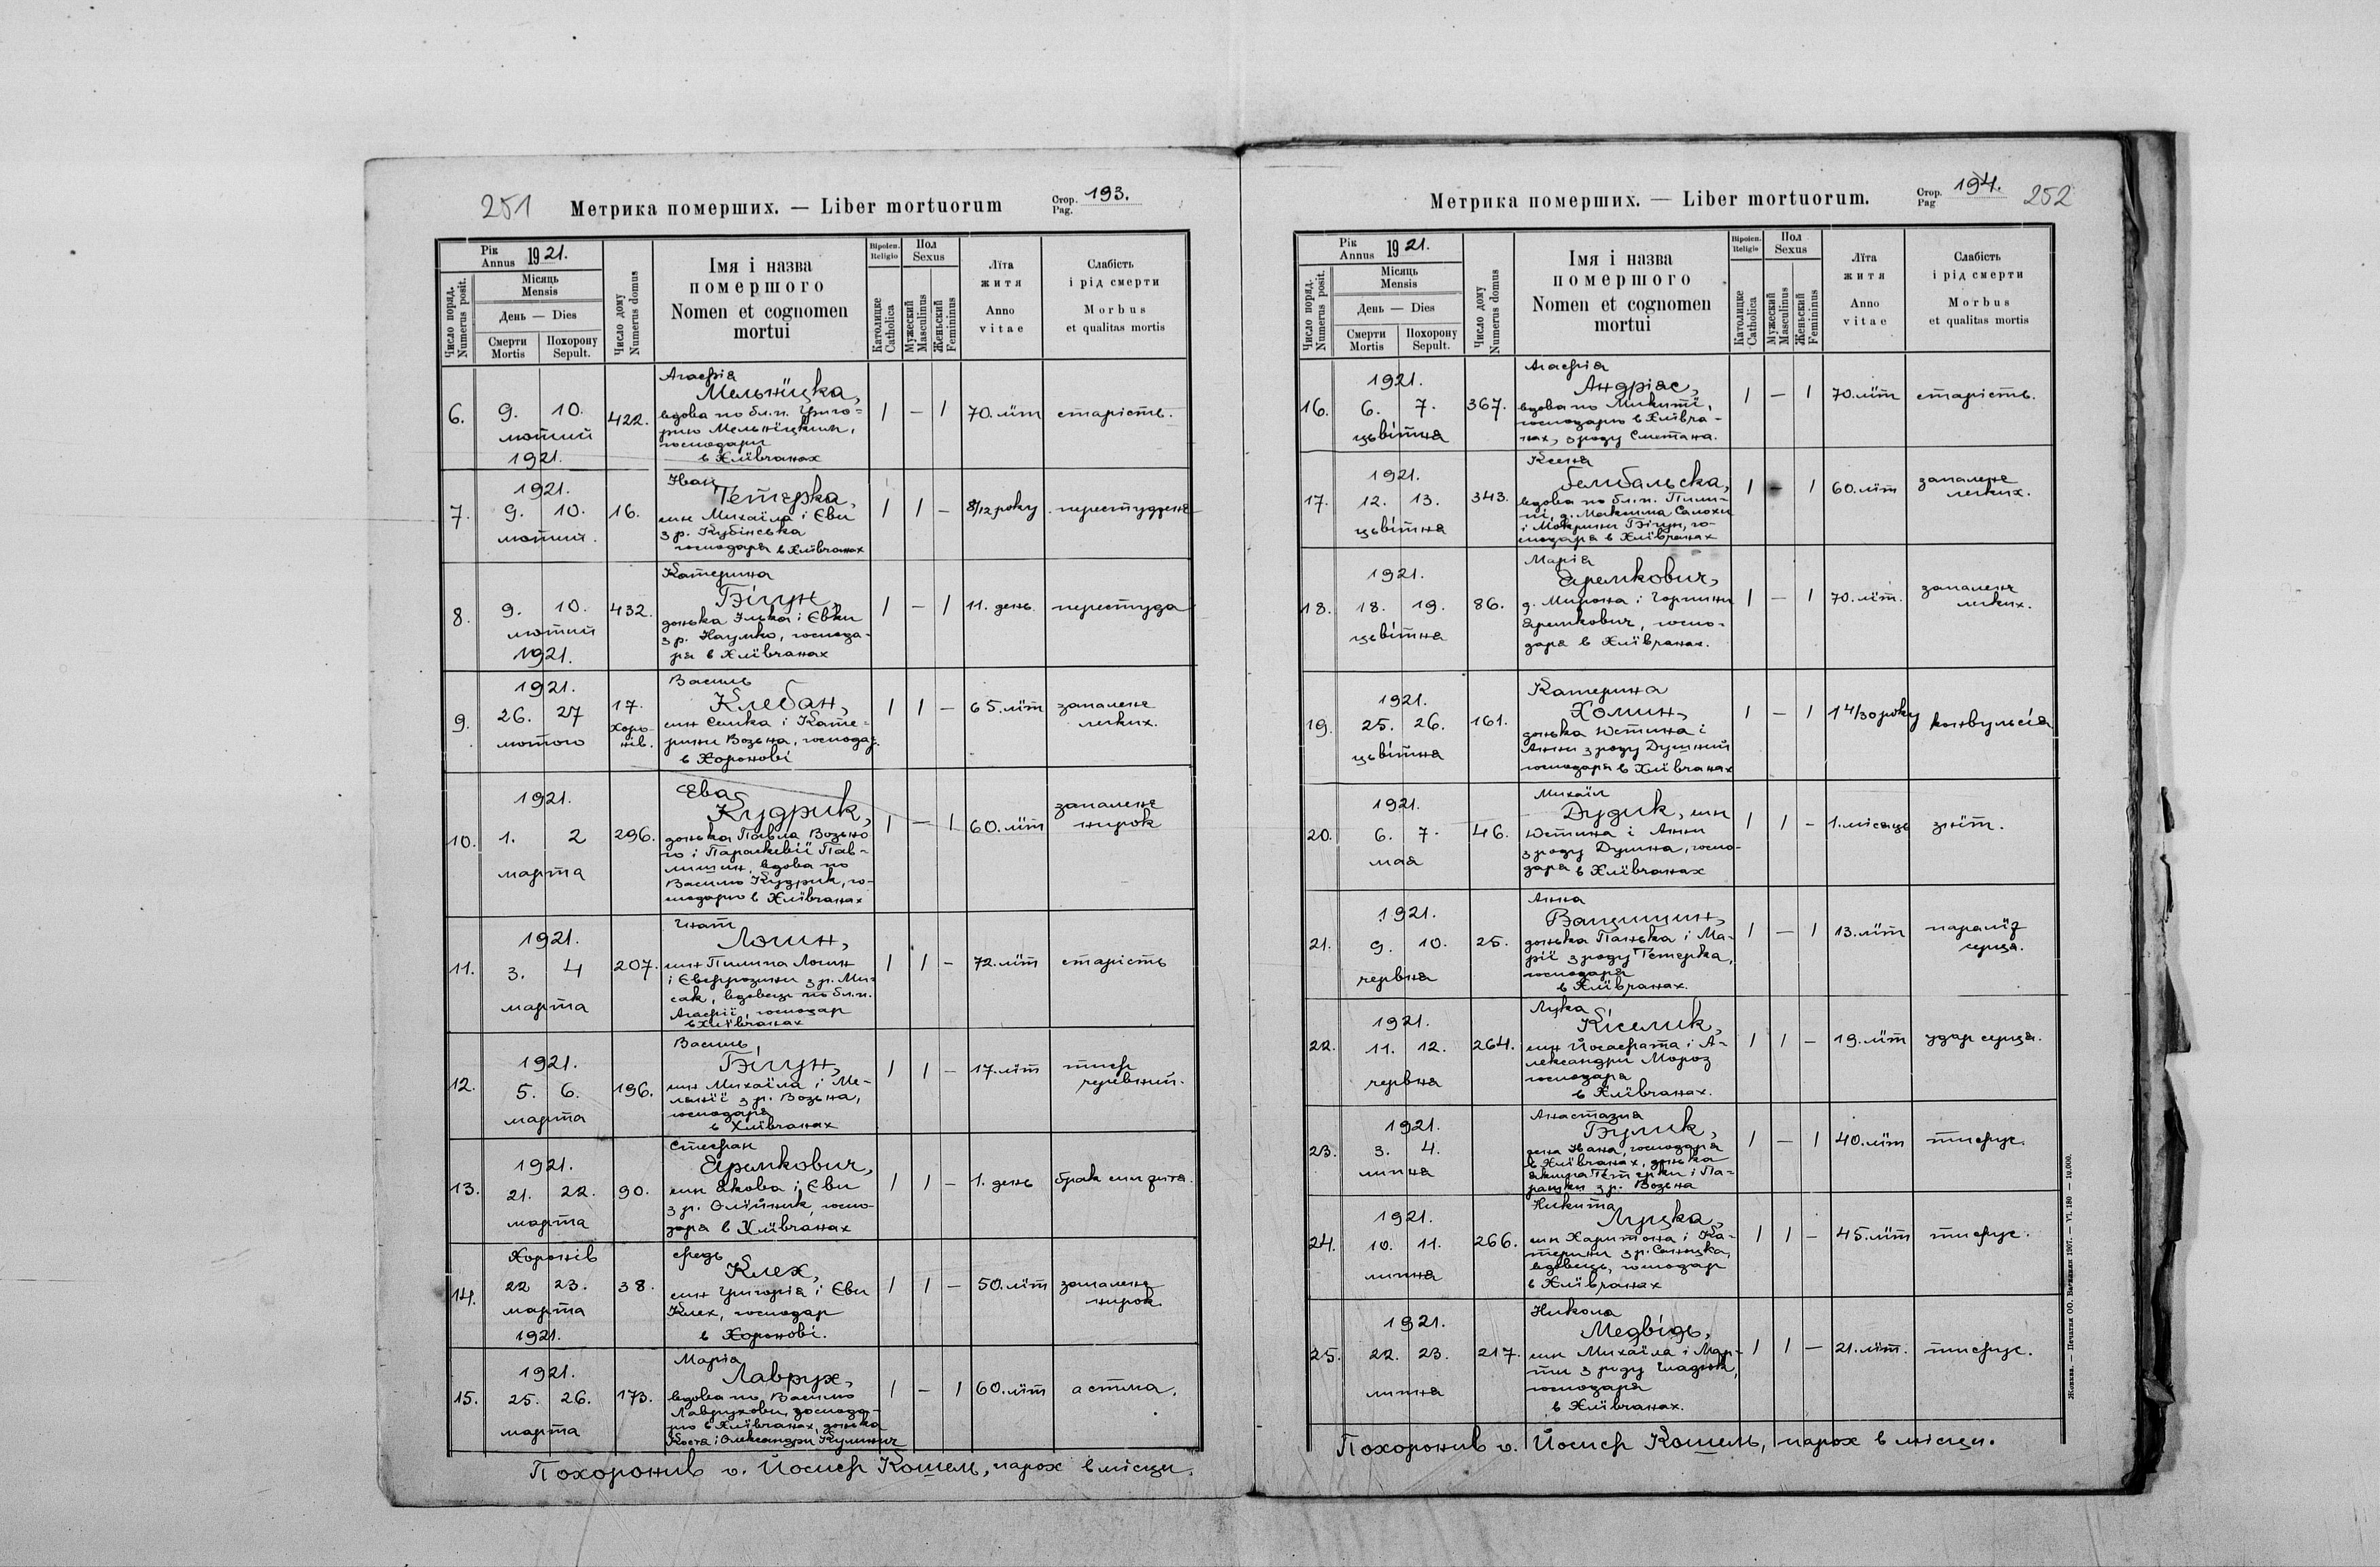 251
Метрика померших. — Liber mortuorum
Стор. Pag. 193.
Рік Annus 1921.
Місяць Mensis
День — Dies
Смерти Mortis
Похорону Sepult.
Число поряд. Numerus posit.
Число дому Numerus domus
Імя і назва
помершого
Nomen et cognomen
mortui
Віроісп. Religio
Католицке Catholica
Пол Sexus
Мужеский Masculinus
Женьский Femininus
Лїта
житя
Anno
vitae
Слабість
і рід смерти
Morbus
et qualitas mortis
6. 9. 10. лютий 1921. 422.
Агафія
Мельнїцка,
вдова по бл.п. Григо-
рию Мельнїцким,
господари
в Хлївчанах
1 — 1 70. лїт старість.
7. 1921. 9. 10. лютий. 16.
Іван
Тетерка,
син Михаїла і Єви
з р. Кубінська
господаря в Хлївчанах
1 1 — 8/12 року перестуджене
8. 9. 10. лютий 1921. 432.
Катерина
Бігун,
донька Ілька і Євки
з р. Наумко, господа-
ря в Хлївчанах
1 — 1 11. день перестуда
9. 1921. 26. 27 лютого 17. Хоро-
нів.
Василь
Клебан,
син Семка і Кате-
рини Возьна, господар.
в Хоронові
1 1 — 65. лїт запалене
легких.
10. 1921. 1. 2 марта 296.
Ева
Кудрик,
донька Павла Возьно
го і Параскевії Пав-
лишин, вдова по
Василю Кудрик, го-
сподарю в Хлївчанах
1 — 1 60. лїт запалене
нирок
11. 1921. 3. 4 марта 207.
Гнат
Логин,
син Пилипа Логин
і Євфрозини з р. Ми-
сак, вдовець по бл.п.
Агафії, господар
в Хлївчанах
1 1 — 72. лїт старість
12. 1921. 5. 6. марта 196.
Василь
Бігун,
син Михаїла і Ме-
ланїї з р. Возьна,
господаря
в Хлївчанах
1 1 — 17. лїт тиф
черевний.
13. 1921. 21. 22. марта 90.
Стефан
Яремкович,
син Якова і Єви
з р. Олїйник, госпо-
даря в Хлївчанах
1 1 — 1. день брак сил дитя.
14. Хоронів 22 23. марта 1921. 38.
Федь
Клех,
син Григорія і Єви
Клех, господар
в Хоронові.
1 1 — 50. лїт запалене
нирок.
15. 1921. 25. 26. марта 173.
Марія
Лаврух,
вдова по Василю
Лаврухови, господа-
рю в Хлївчанах, донька
Костя і Олександри Кулинич
1 — 1 60. лїт астма.
Похоронив о. Йосиф Кошель, парох в місци.
Метрика померших. — Liber mortuorum.
Стор. Pag 194.
252
Рік Annus 1921.
Місяць Mensis
День — Dies
Смерти Mortis
Похорону Sepult.
Число поряд. Numerus posit.
Число дому Numerus domus
Імя і назва
помершого
Nomen et cognomen
mortui
Віроісп. Religio
Католицке Catholica
Пол Sexus
Мужеский Masculinus
Женьский Femininus
Лїта
житя
Anno
vitae
Слабість
і рід смерти
Morbus
et qualitas mortis
16. 1921. 6. 7. цьвітня 367.
Агафія
Андріяс,
вдова по Микитї,
господарю в Хлївча-
нах, з роду Сметана.
1 — 1 70. лїт старість.
17. 1921. 12. 13. цьвітня 343.
Ксеня
Бембальска,
вдова по бл.п. Пили-
пі, д. Максима Салохи
і Мокрини Бігун, го-
сподаря в Хлївчанах
1 — 1 60. лїт запалене
легких.
18. 1921. 18. 19. цьвітня 86.
Марія
Яремкович,
д. Мирона і Горпини
Яремкович, госпо-
даря в Хлївчанах.
1 — 1 70. лїт. запаленя
легких.
19. 1921. 25. 26. цьвітня 161.
Катерина
Холин,
донька Юстина і
Анни з роду Душний
господаря в Хлївчанах
1 — 1 14/30 року конвульсія
20. 1921. 6. 7. мая 46.
Михаїл
Дудик, син
Юстина і Анни
з роду Душна, госпо-
даря в Хлївчанах
1 1 — 1. місяць знїт.
21. 1921. 9. 10. червня 25.
Анна
Ващишин,
донька Панька і Ма-
рії з роду Тетерка,
господаря
в Хлївчанах.
1 — 1 13. лїт паралїз
серця.
22. 1921. 11. 12. червня 264.
Лука
Кіселик,
син Йосафата і А-
лександри Мороз
господаря
в Хлївчанах.
1 1 — 19. лїт удар серця.
23. 1921. 3. 4. липня
Анастазия
Булик,
жена Івана, господаря
в Хлївчанах, донька
Якима Тетерки і Па-
раньки з р. Возьна
1 — 1 40. лїт тифус.
24. 1921. 10. 11. липня 266.
Никита
Луцка,
син Харитона і Ка-
терини з р. Саницка,
вдовець, господар
в Хлївчанах
1 1 — 45. лїт тифус.
25. 1921. 22. 23. липня 217.
Никола
Медвідь,
син Михаїла і Мар-
ти з роду Гладюк,
господаря
в Хлївчанах.
1 1 — 21. лїт. тифус.
Похоронив о. Йосиф Кошель, парох в місци.
Жовква. — Печатня ОО. Василиян 1907. — VI. 180 — 10.000.